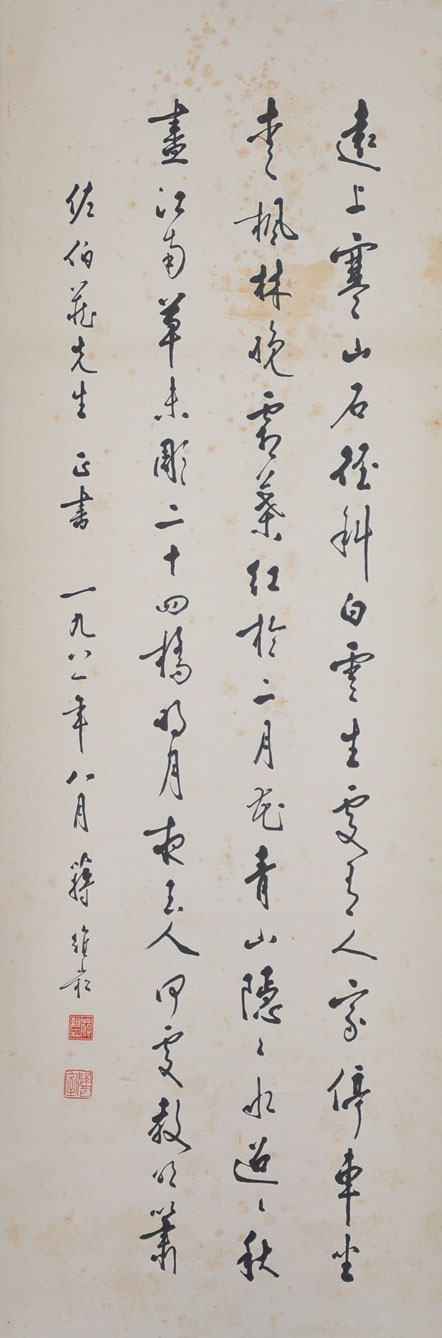 遠上寒山石徑斜白雲生處有人家停車坐
愛楓林晚霜葉紅於二月花青山隱〻水迢〻秋
盡江南草未彫二十四橋明月夜玉人何處教吹簫
佐伯 先生 正書 一九八一年八月 蔣維崧